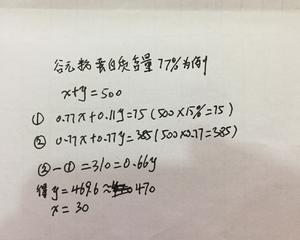 谷元粉蛋白质含量77%为例
x+y=500
① 0.77x+0.11y=75(500×15%=75)
② 0.77x+0.77y=385(500×0.77=385)
②-①=310=0.66y
得y=469.6≈470
x=30